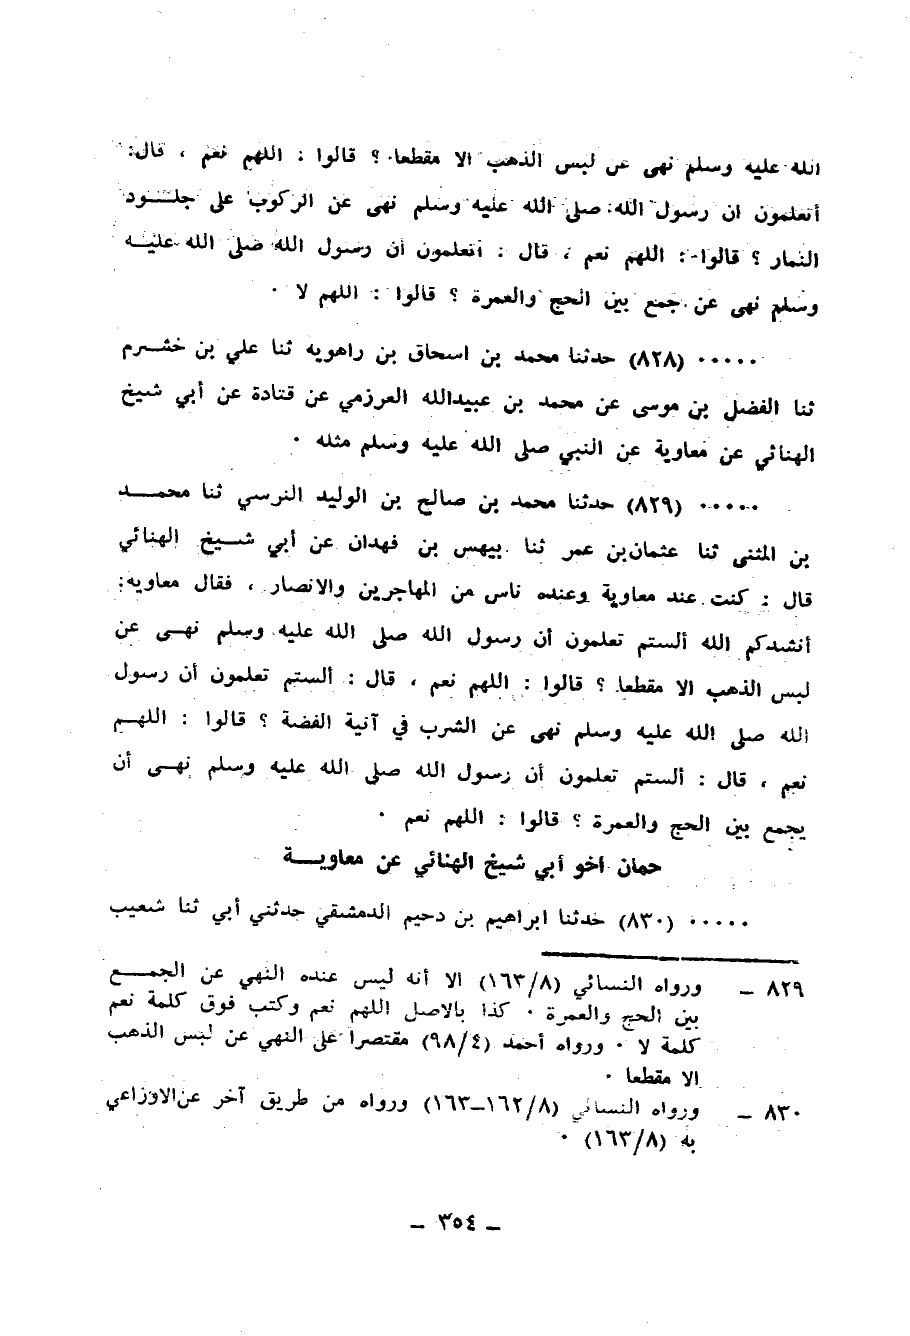 الله عليه وسلم نهى عن لبس الذهب الا مقطعا ؟ قالوا : اللهم نعم ، قال:
أتعلمون ان رسول الله صلى الله عليه وسلم نهى عن الركوب على جلـــود
النمار ؟ قالوا : اللهم نعم ، قال : أتعلمون أن رسول الله صلى الله عليـــه
وسلم نهى عن جمع بين الحج والعمرة ؟ قالوا : اللهم لا ٠
٠٠٠٠٠ (٨٢٨) حدثنا محمد بن اسحاق بن راهويه ثنا علي بن خشـــرم
ثنا الفضل بن موسى عن محمد بن عبيدالله العرزمي عن قتادة عن أبي شيخ
الهنائي عن معاوية عن النبي صلى الله عليه وسلم مثله ٠
٠٠٠٠٠ (٨٢٩) حدثنا محمد بن صالح بن الوليد النرسي ثنا محمـــد
بن المثنى ثنا عثمان بن عمر ثنا بيهس بن فهدان عن أبي شـــيخ الهنائي
قال : كنت عند معاوية وعنده ناس من المهاجرين والانصار ، فقال معاويه:
أنشدكم الله ألستم تعلمون أن رسول الله صلى الله عليه وسلم نهـــى عن
لبس الذهب الا مقطعا ؟ قالوا : اللهم نعم ، قال : ألستم تعلمون أن رسول
الله صلى الله عليه وسلم نهى عن الشرب في آنية الفضة ؟ قالوا : اللهـــم
نعم ، قال : ألستم تعلمون أن رسول الله صلى الله عليه وسلم نهـــى أن
يجمع بين الحج والعمرة ؟ قالوا : اللهم نعم ٠
حمان اخو أبي شيخ الهنائي عن معاويـــة
٠٠٠٠٠ (٨٣٠) حدثنا ابراهيم بن دحيم الدمشقي حدثني أبي ثنا شعيب
٨٢٩ – ورواه النسائي (١٦٣/٨) الا أنه ليس عنده النهي عن الجمـــع
بين الحج والعمرة ٠ كذا بالاصل اللهم نعم وكتب فوق كلمة نعم
كلمة لا ٠ ورواه أحمد (٩٨/٤) مقتصرا على النهي عن لبس الذهب
الا مقطعا ٠
٨٣٠ – ورواه النسائي (١٦٢/٨–١٦٣) ورواه من طريق آخر عن الاوزاعي
به (١٦٣/٨) ٠
– ٣٥٤ –